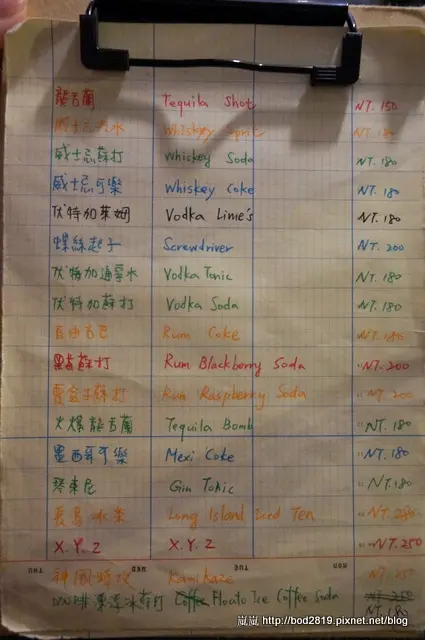 龍舌蘭 Tequila Shot NT. 150
威士忌汽水 Whiskey Sprit NT. 180
威士忌蘇打 Whiskey Soda NT. 180
威士忌可樂 Whiskey Coke NT. 180
伏特加萊姆 Vodka Lime's NT. 180
螺絲起子 Screwdriver NT. 200
伏特加通寧水 Vodka Tonic NT. 180
伏特加蘇打 Vodka Soda NT. 180
自由古巴 Rum Coke NT. 180
黑莓蘇打 Rum Blackberry Soda NT. 200
覆盆子蘇打 Rum Raspberry Soda NT. 200
火爆龍舌蘭 Tequila Bomb NT. 180
墨西哥可樂 Mexi Coke NT. 180
琴東尼 Gin Tonic NT. 180
長島冰茶 Long Island Iced Tea NT. 280
X.Y.Z X.Y.Z NT. 250
THU WED MON
神風特攻 Kamikaze NT. 250
咖啡漂浮冰蘇打 Coffee Floato Ice Coffee Soda NT. 180
嵐嵐 http://bod2819.pixnet.net/blog